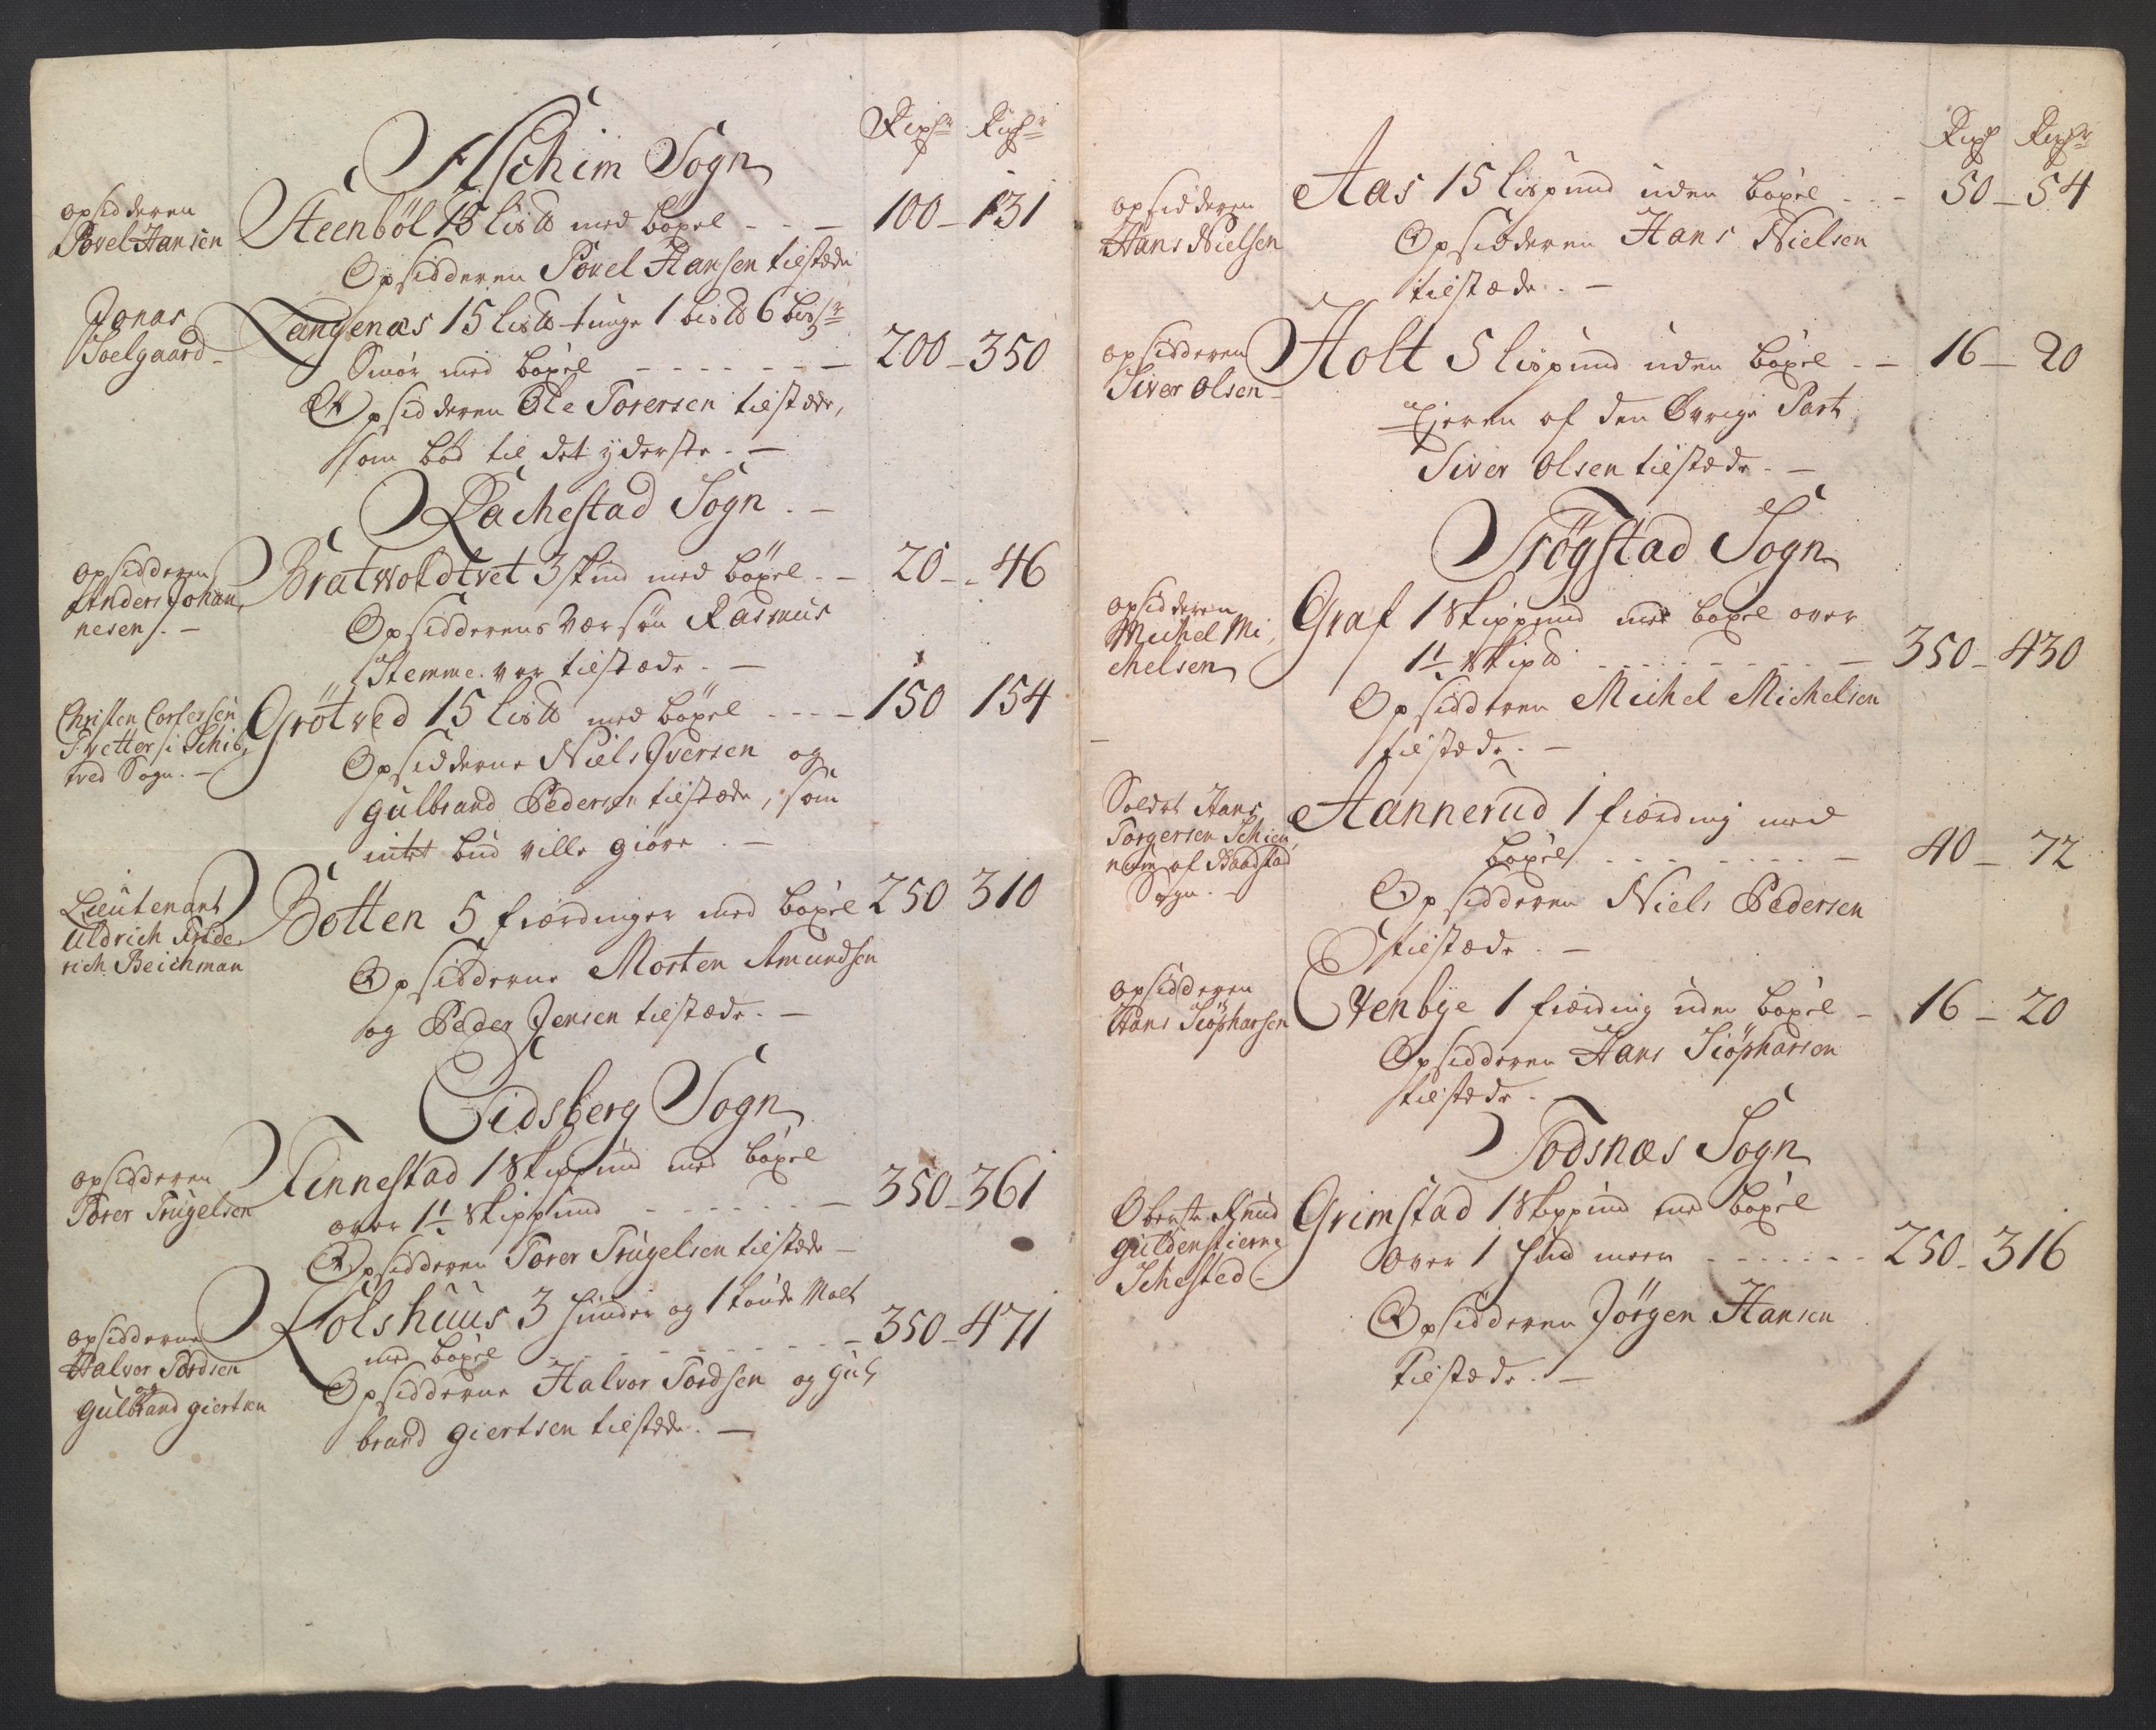 Rixdr Rixdr
Aschim Sogn
opsidderen
Povel Hansen
Steenböl 15 Lis℔ med böxel - - - 100 - 131
Opsidderen Povel Hansen tilstæde
Jonas
Soelgaard -
Langenæs 15 lis℔ tunge 1 bis℔ 6
Smör med böxel - - - - - - - 200 - 350
Opsidderen Ole Torersen tilstæde,
som bød til det yderste. -
Rachestad Sogn. -
opsidderen
Anders Johan
nesen. -
Bratwoldtvet 3 skind med böxel. - 20 - - 46
Opsidderens Værsøn Rasmus
Stemme. var tilstæde. -
Christen Corfersen
Tvetter i Schib
tved Sogn. -
Grötved 15 Lis℔ med böxel - - - - 150 154
Opsidderne Niels Iversen og
Gulbrand Pedersen tilstæde, som
intet bud ville giøre. -
Lieutenant
Uldrich Fride
rich Beichman
Botten 5 fierdinger med böxel 250 310
Opsidderne Morten Amundsen
og Peder Jensen tilstæde. -
Eidsberg Sogn
opsidderen
Torer Trugelsen
Tennestad 1 Skippund med böxel
over 1 1/2 Skippund - - - - - - 350 - 361
Opsidderen Torer Trugelsen tilstæde -
opsidderne
Halvor Tordsen
og
Gulbrand Giertsen
Kolshuus 3 huuder og 1 tønde Malt
med böxel - - - - - - - - 350 - 471
Opsidderne Halvor Tordsen og Gul
brand Giertsen tilstæde. -
Rixd Rixdr
opsidderen
Hans Nielsen
Aas 15 lispund uden böxel - - - 50 - 54
Opsidderen Hans Nielsen
tilstæde. -
opsidderen
Siver Olsen -
Holt 5 lispund uden böxel - - 16 - 20
Ejeren af den Øvrige Part
Siver Olsen tilstæde. -
Trögstad Sogn
opsidderen
Michel Mi
chelsen
Graf 1 Skippund med böxel over
1 1/2 Skip℔ - - - - - - - - - 350 - 430
Opsidderen Michel Michelsen
tilstæde. -
Soldat Hans
Torgersen Schien
num af Baadstad
Sogn. -
Aannerud 1 fierding med
böxel - - - - - - - - 40 - 72
Opsidderen Niels Pedersen
tilstæde. -
opsidderen
Hans Siöpharsen
Evenbye 1 fierding uden böxel - 16 - 20
Opsidderen Hans Siöpharsen
tilstæde.
Todsnæs Sogn
Oberste Knud
Güldenstierne
Sehested -
Grimstad 1 Skippund med böxel
over 1 hud meere - - - - - - 250 - 316
Opsidderen Jörgen Hansen
tilstæde. -